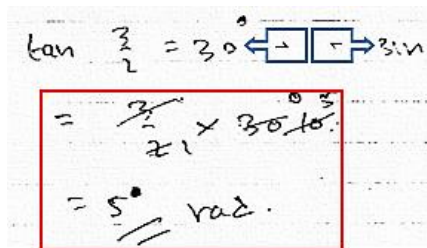 tan 3/2 = 30° 3in
= 3/2 × 30
= 5° rad.